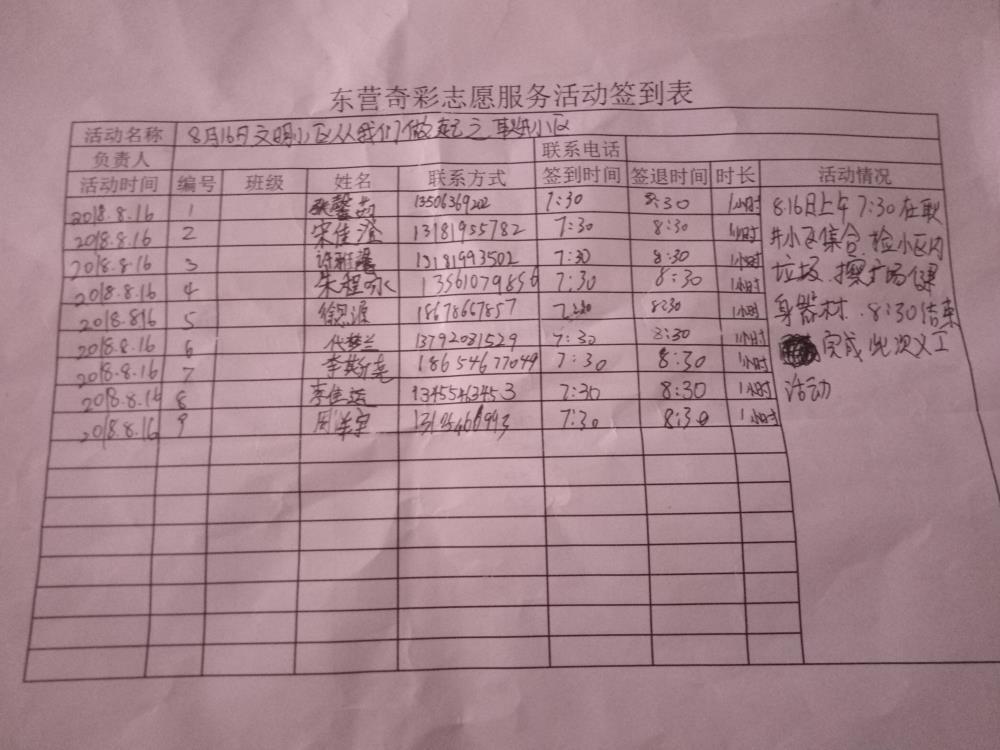 东营奇彩志愿服务活动签到表
活动名称 8月16日文明小区从我们做起之耿井小区
负责人 联系电话
活动时间 编号 班级 姓名 联系方式 签到时间 签退时间 时长 活动情况
2018.8.16 1 13506369202 7:30 8:30 1小时
2018.8.16 2 宋佳澄 13181955782 7:30 8:30 1小时
2018.8.16 3 13181993502 7:30 8:30 1小时
2018.8.16 4 朱程咏 13561079856 7:30 8:30 1小时
2018.816 5 徐思源 18678667857 7:30 8:30 1小时
2018.8.16 6 代梦兰 13792081529 7:30 8:30 1小时
2018.8.16 7 李斯尧 18654677049 7:30 8:30 1小时
2018.8.16 8 李佳运 13455463453 7:30 8:30 1小时
2018.8.16 9 周 7:30 8:30 1小时
8.16日上午7:30在耿
井小区集合 检小区内
垃圾.擦广场健
身器材.8:30结束
完成此次义工
活动